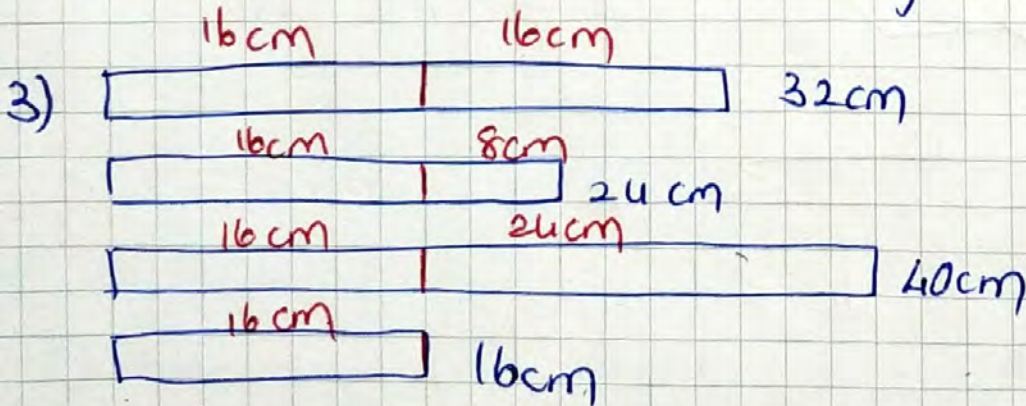 16cm 16cm
3) 32cm
16cm 8cm
24 cm
16 cm 24cm
40cm
16 cm
16cm